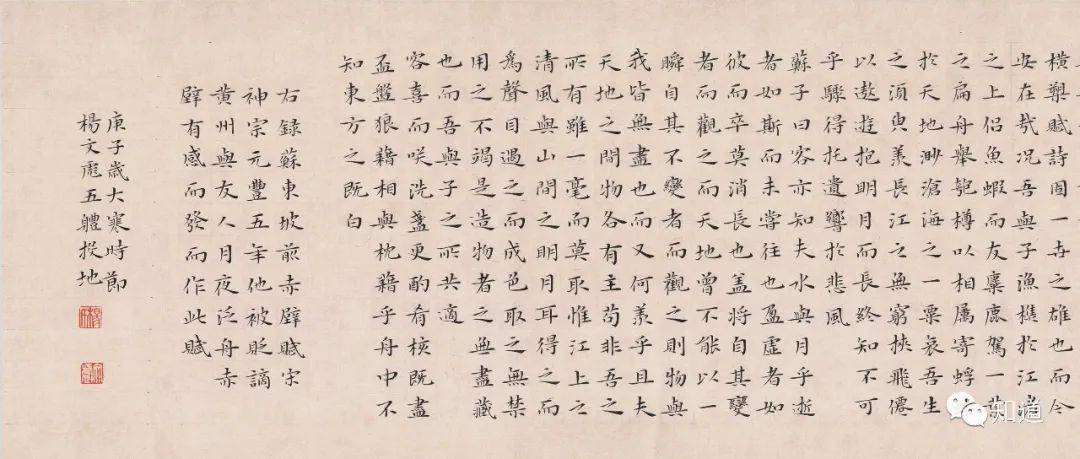 橫槊賦詩固一世之雄也而今
安在哉況吾與子漁樵於江渚
之上侶魚蝦而友麋鹿駕一葉
之扁舟舉匏樽以相屬寄蜉
於天地渺滄海之一粟哀吾生
之須臾羨長江之無窮挾飛僊
以遨遊抱明月而長終知不可
乎驟得托遺響於悲風
蘇子曰客亦知夫水與月乎逝
者如斯而未嘗往也盈虛者如
彼而卒莫消長也蓋將自其變
者而觀之而天地曾不能以一
瞬自其不變者而觀之則物與
我皆無盡也而又何羨乎且夫
天地之間物各有主苟非吾之
所有雖一毫而莫取惟江上之
清風與山間之明月耳得之而
為聲目遇之而成色取之無禁
用之不竭是造物者之無盡藏
也而吾與子之所共適
客喜而咲洗盞更酌肴核既盡
盃盤狼藉相與枕藉乎舟中不
知東方之既白
右録蘇東坡前赤壁賦宋
神宗元豐五年他被貶謫
黃州與友人月夜泛舟赤
壁有感而發而作此賦
庚子歲大寒時節
楊文彪五體投地
知道